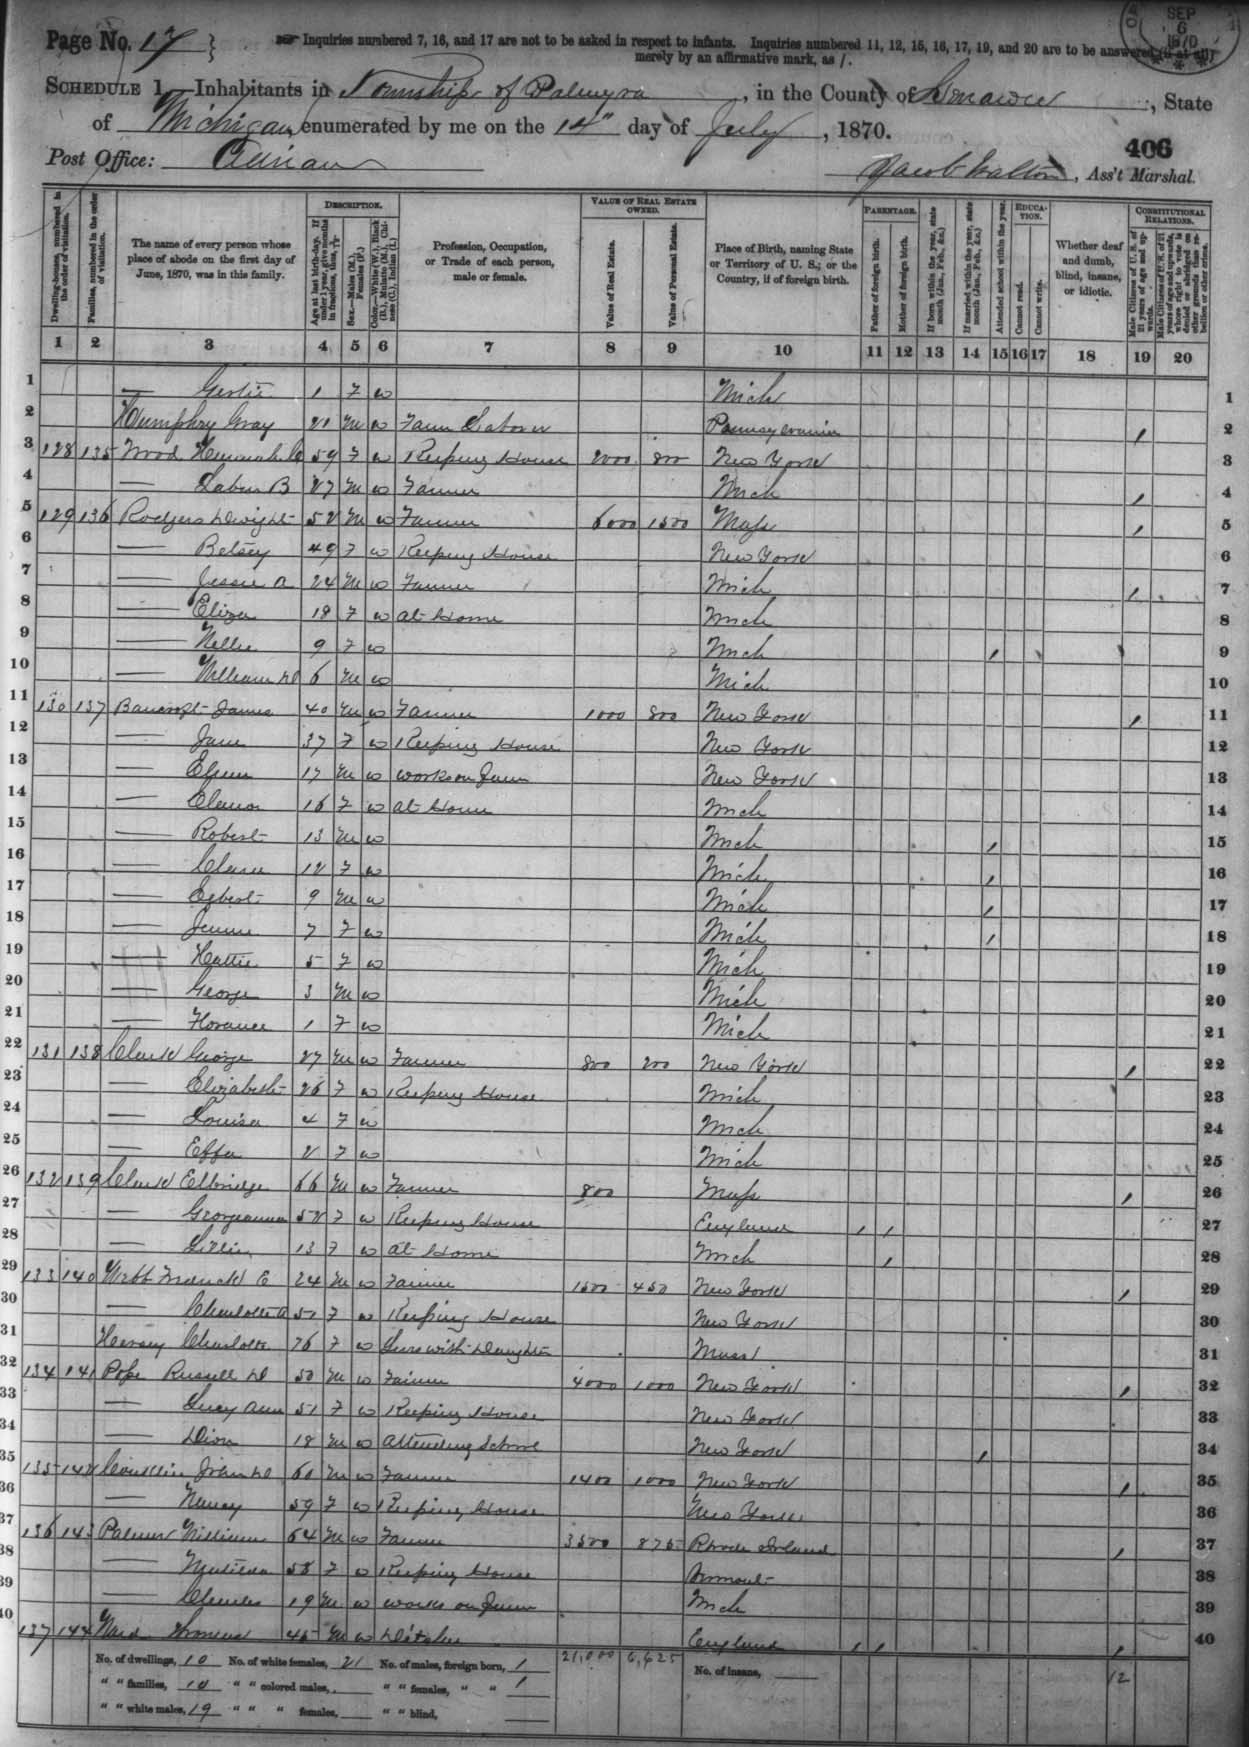 Page No. 17
☞ Inquiries numbered 7, 16, and 17 are not to be asked in respect to infants. Inquiries numbered 11, 12, 15, 16, 17, 19, and 20 are to be answered (if at all)
merely by an affirmative mark, as /.
SEP
6
1870
SCHEDULE 1.—Inhabitants in Township of Palmyra, in the County of Lenawee, State
of Michigan, enumerated by me on the 14" day of July, 1870.
406
Post Office: Adrian
Jacob Walton, Ass't Marshal.
Dwelling-houses, numbered in the order of visitation.
Families, numbered in the order of visitation.
The name of every person whose place of abode on the first day of June, 1870, was in this family.
DESCRIPTION.
Age at last birth-day. If under 1 year, give months in fractions, thus,
Sex.—Males (M.), Females (F.)
Color.—White (W.), Black (B.), Mulatto (M.), Chinese (C.), Indian (I.)
Profession, Occupation, or Trade of each person, male or female.
VALUE OF REAL ESTATE OWNED.
Value of Real Estate.
Value of Personal Estate.
Place of Birth, naming State or Territory of U. S.; or the Country, if of foreign birth.
PARENTAGE.
Father of foreign birth.
Mother of foreign birth.
If born within the year, state month (Jan., Feb., &c.)
If married within the year, state month (Jan., Feb., &c.)
EDUCATION.
Attended school within the year.
Cannot read.
Cannot write.
Whether deaf and dumb, blind, insane, or idiotic.
CONSTITUTIONAL RELATIONS.
Male Citizens of U. S. of 21 years of age and upwards.
Male Citizens of U. S. of 21 years of age and upwards, whose right to vote is denied or abridged on other grounds than rebellion or other crime.
1 2 3 4 5 6 7 8 9 10 11 12 13 14 15 16 17 18 19 20
1 — Gertie 1 F W Mich 1
2 Humphry Gray 21 M W Farm Laborer Pennsylvania / 2
3 128 135 Wood 59 F W Keeping House 2000 800 New York 3
4 — Laban B 27 M W Farmer Mich / 4
5 129 136 Rodgers Dwight 52 M W Farmer 6000 1500 Mass / 5
6 — Betsey 49 F W Keeping House New York 6
7 — Jessie A 24 M W Farmer Mich / 7
8 — Eliza 18 F W at Home Mich 8
9 — Nellie 9 F W Mich / 9
10 — William D 6 M W Mich 10
11 130 137 Bancroft James 40 M W Farmer 1000 800 New York / 11
12 — Jane 37 F W Keeping House New York 12
13 — 17 M W works on Farm New York 13
14 — Eleanor 16 F W at Home Mich 14
15 — Robert 13 M W Mich / 15
16 — Clara 12 F W Mich / 16
17 — Egbert 9 M W Mich / 17
18 — Jennie 7 F W Mich / 18
19 — Hattie 5 F W Mich 19
20 — George 3 M W Mich 20
21 — Florance 1 F W Mich 21
22 131 138 Clark George 27 M W Farmer 800 200 New York / 22
23 — Elizabeth 26 F W Keeping House Mich 23
24 — Louisa 4 F W Mich 24
25 — Effa 2 F W Mich 25
26 132 139 Clark Elbridge 66 M W Farmer 800 Mass / 26
27 — Georgeanna 52 F W Keeping House England / / 27
28 — Lillie 13 F W at Home Mich / 28
29 133 140 Webb E 24 M W Farmer 1500 450 New York / 29
30 — Charlotte A 51 F W Keeping House New York 30
31 Charlotte 76 F W Lives with Daughter Mass 31
32 134 141 Pope Russell D 50 M W Farmer 4000 1000 New York / 32
33 — Lucy Ann 51 F W Keeping House New York 33
34 — Dion 18 M W attending School New York / 34
35 135 142 John D 60 M W Farmer 1400 1000 New York / 35
36 — Nancy 59 F W Keeping House New York 36
37 136 143 Palmer William 64 M W Farmer 3500 875 Rhode Island / 37
38 — Matilda 58 F W Keeping House Vermont 38
39 — Charles 19 M W works on Farm Mich 39
40 137 144 Ward Thomas 45 M W Ditcher England / / / 40
No. of dwellings, 10 No. of white females, 21 No. of males, foreign born, 1 21,000 6,625 No. of insane, 12
" " families, 10 " " colored males, " " females, " " 1
" " white males, 19 " " " females, " " blind,